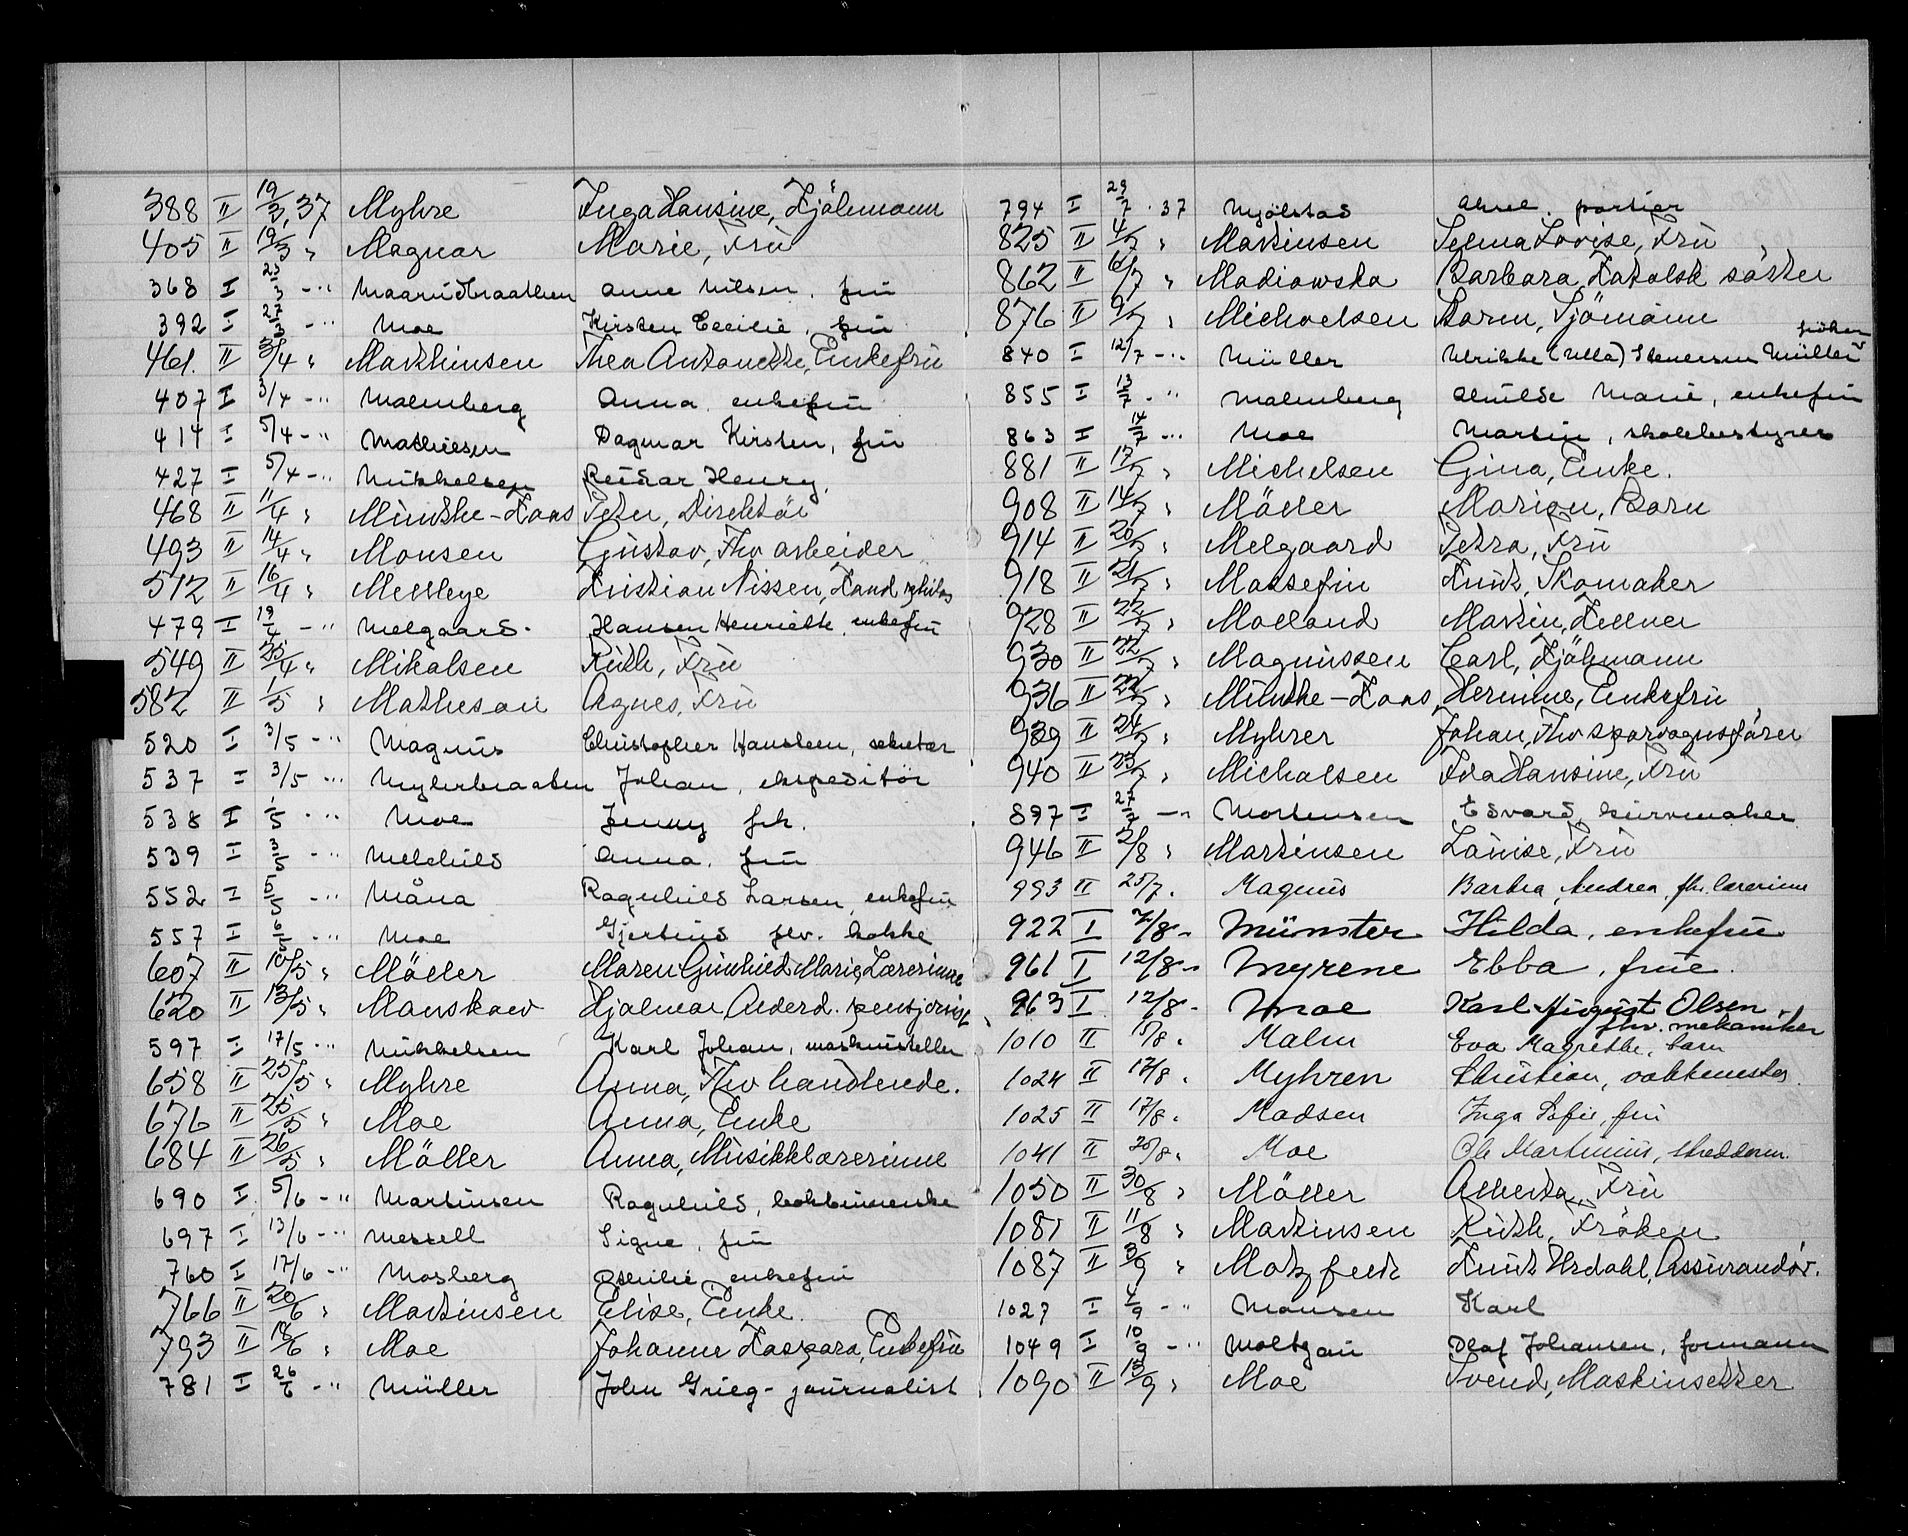 388 II 19/3, 37 Myhre Inga Hansine, Kjöbmann
405 II 19/3 " Magnar Marie, Frü
368 I 23/3 -" Maarud Anne Nilsen, frü
392 I 27/3 -" Moe Kirsten Cecilie, frü
461. II 3/4 " Mathinsen Thea Antonette, Enkefrü
407 I 3/4 -" Malmberg Anna, enkefrü
414 I 5/4 -" Mathiesen Dagmar Kirsten, frü
427 I 5/4 -" Mikkelsen Reidar Henry,
468 II 11/4 " Münthe-Kaas Peter, Direktör
493 II 14/4 " Monsen Gustav, Fhv arbeider
512 II 16/4 " Melleye Kristian Nissen, Kand philos
479 I 19/4 -" Melgaard. Hansen Henriette, enkefrü
549 II 25/4 " Mikalsen Rüth, Frü
582 II 1/5 " Matheson Agnes, Frü
520 I 3/5 -" Magnus Christopher Hansteen, sekretær
537 I 3/5 -" Myhrbraaten Johan, ekspeditör
538 I 1/5 -" Moe Jenny frk.
539 I 3/5 -" Melchild Anna, frü
552 I 5/5 -" Måna Ragnhild Larsen, enkefrü
557 I 6/5 -" Moe Gjertine fhv. kokke
607 II 10/5 " Möller Maren Günhild Marie, Lærerinne
620 II 13/5 " Manskow Hjalmar Anderd. pensjonist
597 I 17/5 -" Mikkelsen Karl Johan, maskinsteller
658 II 25/5 " Myhre Anna, Fhv handlende.
676 II 25/5 " Moe Anna, Enke
684 II 26/5 " Möller Anna, Musikklærerinne
690 I 5/6 -" Martinsen Ragnhild, bokbinnerske
697 I 13/6 -" Messell Signe, frü
760 I 17/6 -" Mosberg Othilie enkefrü
766 II 20/6 " Martinsen Elise, Enke.
793 II 18/6 " Moe Johanne Kaspara, Enkefrü
781 I 26/6 -" Müller John Grieg - journalist
794 I 29/7 . 37 Mjölstad Aksel, portier
825 II 4/7 " Martinsen Selma Lovise, Frü
862 II 16/7 " Madiowska Barbara, Katolsk söster
876 II 9/7 " Michaelsen Karen, Sjömann
840 I 12/7 -" Müller Ulrikke (Ulla) Stenersen Müller fröken
855 I 13/7 -" Malmberg Alvilde Marie, enkefrü
863 I 14/7 -" Moe Martin, skolebestyrer
881 II 17/7 " Michelsen Gina, Enke.
908 II 14/7 " Möller Marion, Barn
914 II 20/7 " Melgaard Petra, Frü
918 II 21/7 " Massefin Knut, Skomaker
928 II 22/7 " Molland Martin, Kellner
930 II 22/7 " Magnussen Carl, Kjöbmann
936 II 22/7 " Münthe-Kaas, Hermine, Enkefrü
939 II 24/7 " Myhrer Johan, Fhv sporvognsförer
940 II 23/7 " Michalsen Ida Hansine, Frü
897 I 27/7 -" Mortensen Edvard, kürvmaker
946 II 2/8 " Martinsen Lauise, Frü
993 II 25/7. Magnus Barbra, Andrea, fhv. lærerinne
922 I 7/8 - Münster Hilda, enkefrü
961 I 12/8 - Myrene Ebba, früe.
963 I 12/8 - Moe Karl August Olsen, fhv. mekaniker
1010 II 15/8 . Malm Eva Magrethe, barn
1024 II 17/8 . Myhren Christian, vaktmester
1025 II 17/8 . Madsen Inga Sofie, frü
1041 II 20/8 . Moe Ole Martinius, skredderm.
1050 II 30/8 " Möller Alberta, Frü
1081 II 11/8 " Martinsen Rüth, Fröken
1087 II 3/9 " Motzfeldt Knut Hrdahl, Assurandör.
1027 I 4/9 -" Monsen Karl
1049 I 10/9 -" Moltzau Olaf Johansen, formann
1090 II 13/9 " Moe Svend, Maskinsetter